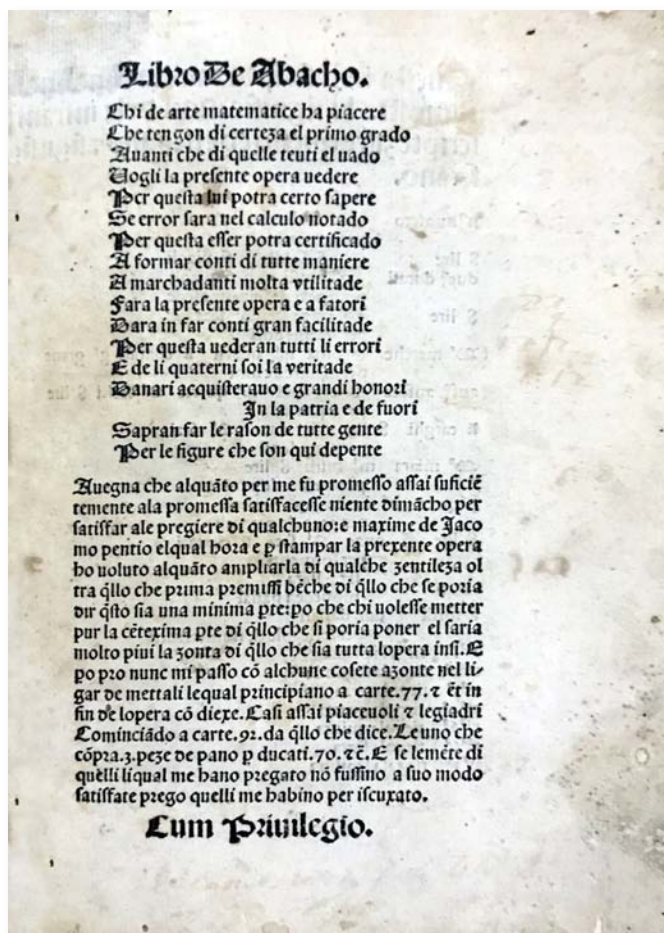 Libro De Abacho.
Chi de arte matematice ha piacere
Che tengon di certeza el primo grado
Auanti che di quelle teuti el uado
Uogli la presente opera uedere
Per questa lui potra certo sapere
Se error sara nel calculo notado
Per questa esser potra certificado
A formar conti di tutte maniere
A marchadanti molta vtilitade
Fara la presente opera e a fatori
Dara in far conti gran facilitade
Per questa uederan tutti li errori
E de li quaterni soi la veritade
Danari acquisterauo e grandi honori
In la patria e de fuori
Sapran far le rason de tutte gente
Per le figure che son qui depente
Auegna che alquãto per me fu promesso assai suficiẽ
temente ala promessa satisfacesse niente dimãcho per
satisfar ale pregiere di qualchuno:e maxime de Jaco
mo pentio elqual hora e ꝑ stampar la prexente opera
ho uoluto alquãto ampliarla di qualche zentileza ol
tra q̃llo che prima premissi bẽche di q̃llo che se poria
dir q̃sto sia una minima ꝑte:po che chi uolesse metter
pur la cẽtexima ꝑte di q̃llo che si poria poner el saria
molto piui la zonta di q̃llo che sia tutta lopera insi.E
po pro nunc mi passo cõ alchune cosete azonte nel li-
gar de mettali lequal principiano a carte.77.⁊ ẽt in
fin de lopera cõ diexe.Casi assai piaceuoli ⁊ legiadri
Cominciãdo a carte.92.da q̃llo che dice.Le uno che
cõpra.3.peze de pano ꝑ ducati.70.⁊c̃.E se lemẽte di
quelli liqual me hano pregato nõ fussino a suo modo
satisfate prego quelli me habino per iscuxato.
Cum Priuilegio.